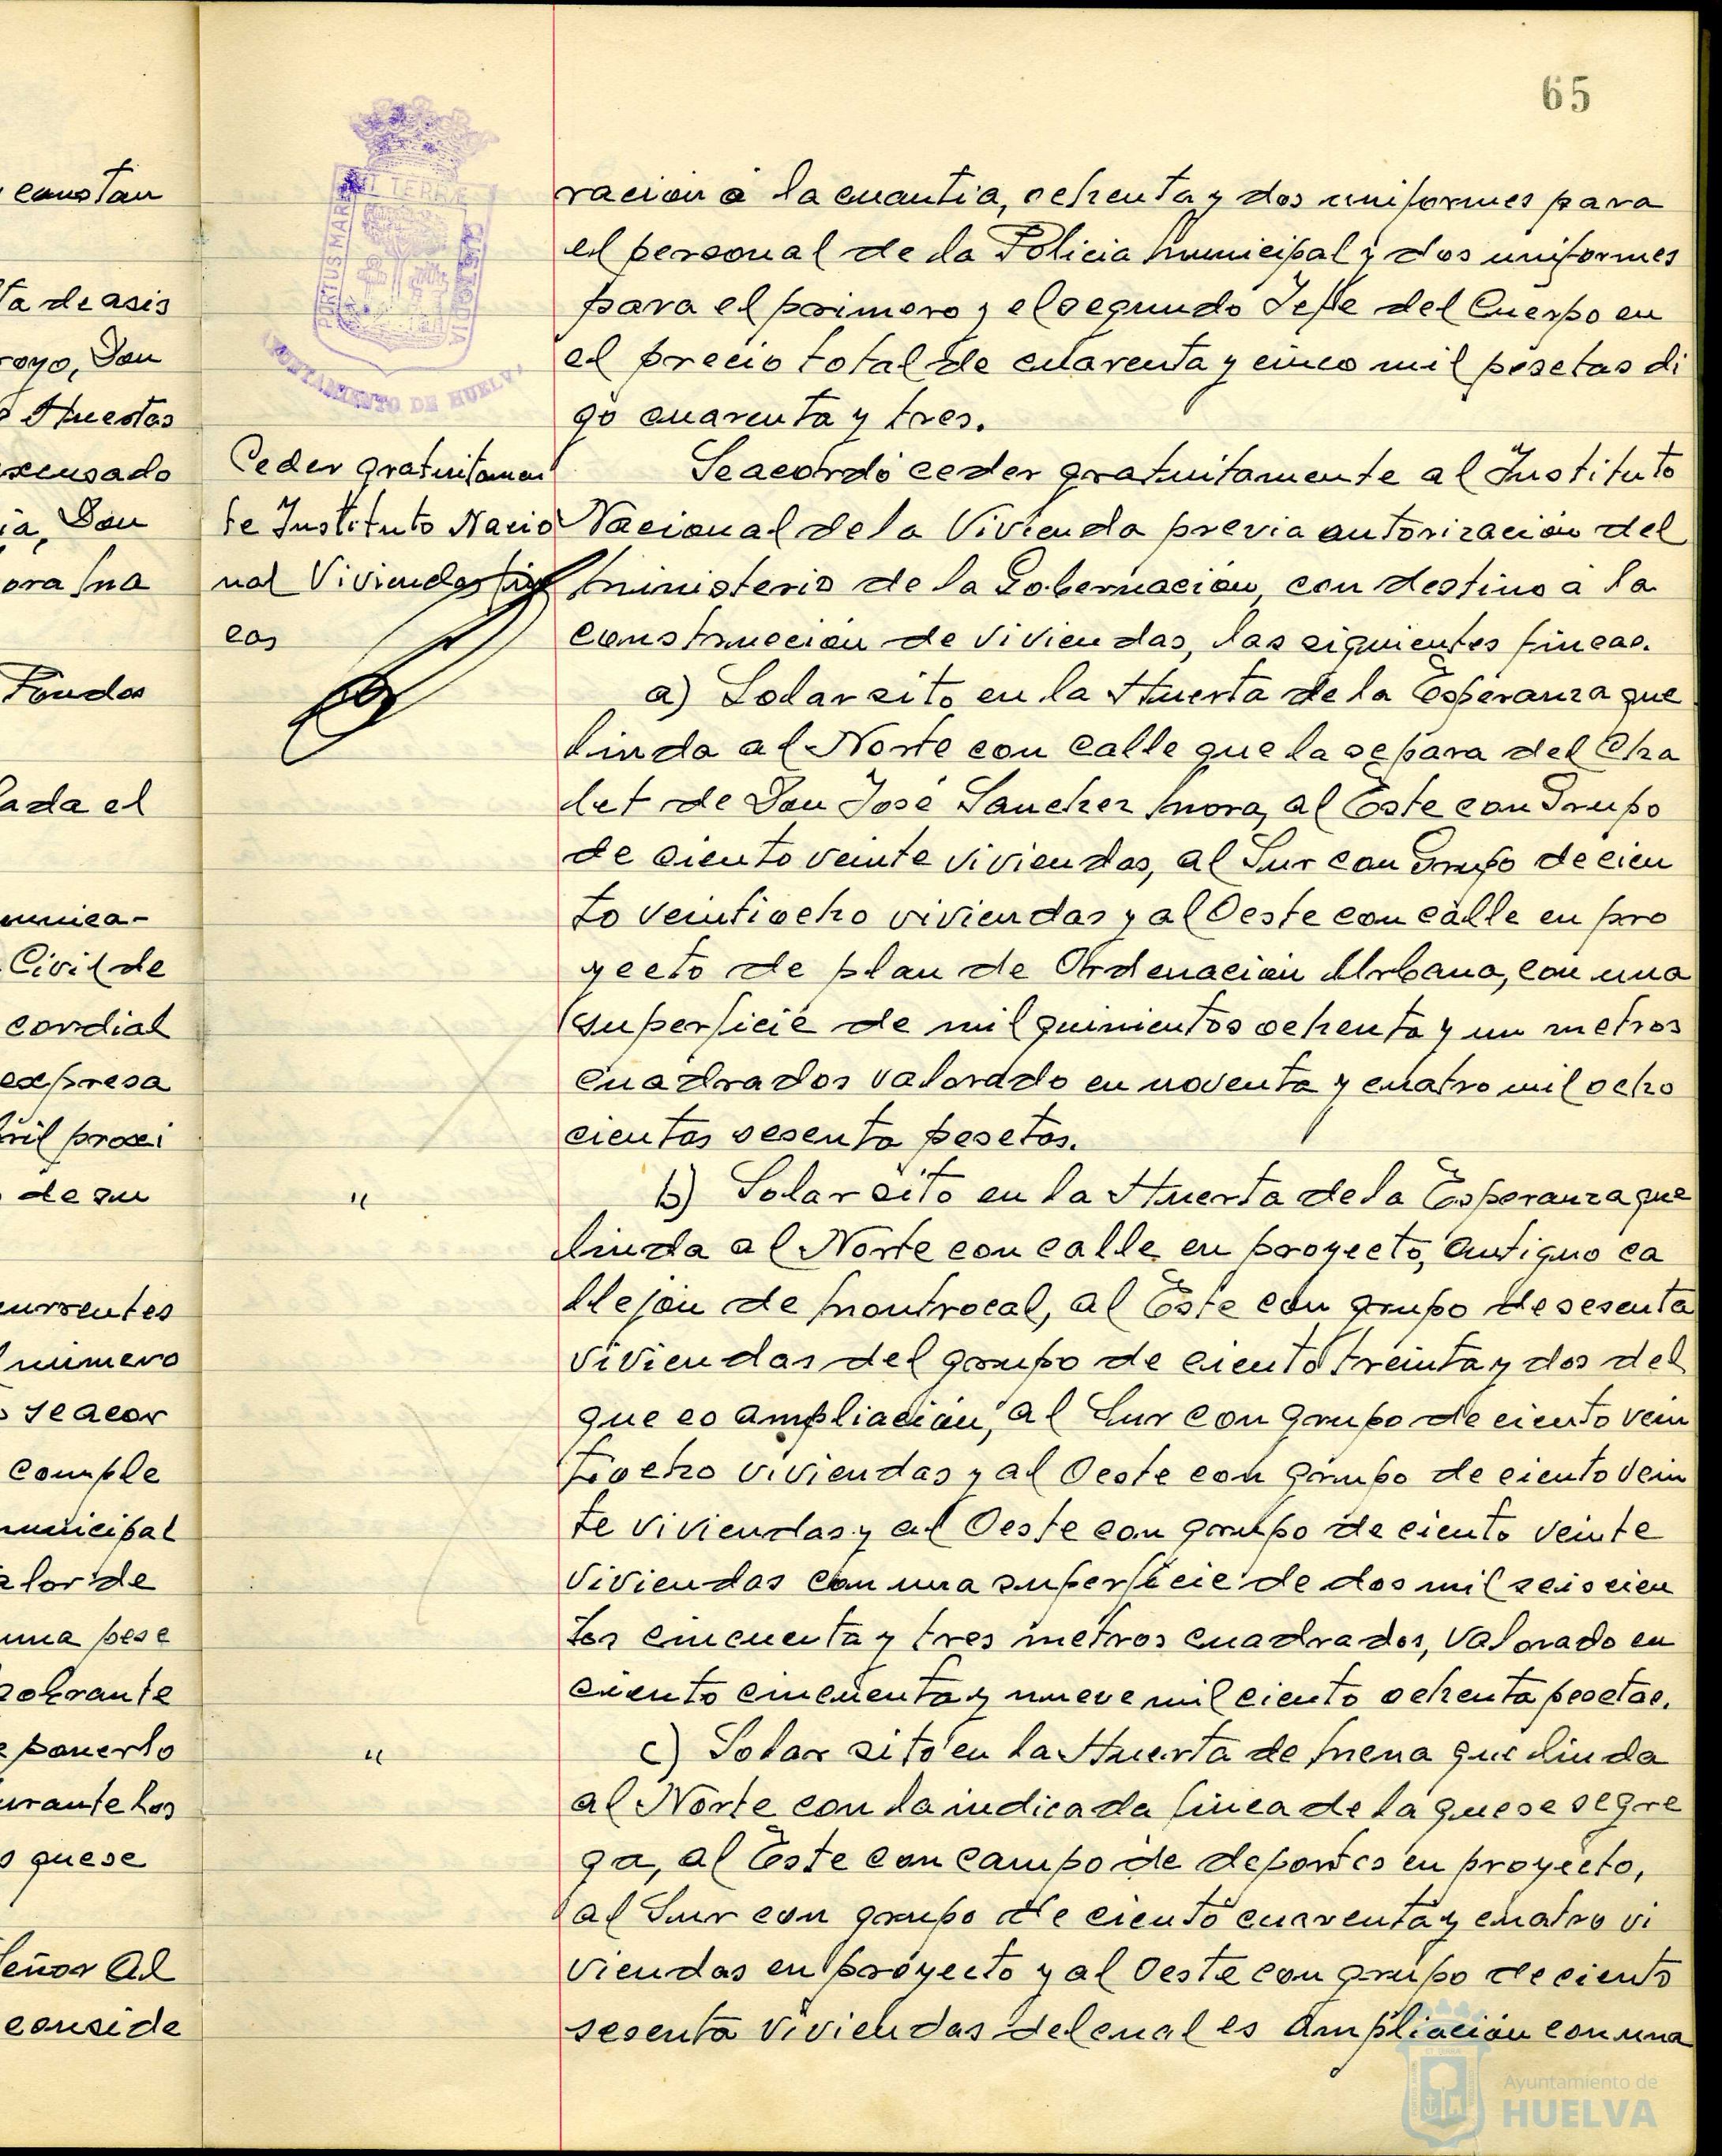 65
constan
ta de asis
royo, Don
Huestas
xcusado
ia, Don
ora Ma
Fondos
lada el
omunica-
Civil de
cordial
expresa
bril proxi
de su
currentes
número
se acor
comple
municipal
alor de
una pese
sobrante
ponerlo
urante los
s que se
Señor Al
conside
PORTUS MARIS ET TERRÆ CUSTODIA
AYUNTAMIENTO DE HUELVA
Ceder gratuitamen
te Instituto Nacio
nal Viviendas fin
cas
"
"
racion á la cuantia, ochenta y dos uniformes para
el personal de la Policia Municipal y dos uniformes
para el primero y el segundo Jefe del Cuerpo en
el precio total de cuarenta y cinco mil pesetas di
go cuarenta y tres.
Se acordó ceder gratuitamente al Instituto
Nacional de la Vivienda previa autorización del
Ministerio de la Gobernación, con destino a la
construcción de viviendas, las siguientes fincas.
a) Solar sito en la Huerta de la Esperanza que
linda al Norte con calle que la separa del Cha
let de Don José Sanchez Mora, al Este con Grupo
de ciento veinte viviendas, al Sur con Grupo de cien
to veintiocho viviendas y al Oeste con calle en pro
yecto de plan de Ordenación Urbana, con una
superficie de mil quinientos ochenta y un metros
cuadrados valorado en noventa y cuatro mil ocho
cientas sesenta pesetas.
b) Solar sito en la Huerta de la Esperanza que
linda al Norte con calle en proyecto, antiguo ca
llejón de Montrocal, al Este con grupo de sesenta
viviendas del grupo de ciento treinta y dos del
que es ampliación, al Sur con grupo de ciento vein
tiocho viviendas y al Oeste con grupo de ciento vein
te viviendas y al Oeste con grupo de ciento veinte
viviendas con una superficie de dos mil seiscien
tos cincuenta y tres metros cuadrados, valorado en
ciento cincuenta y nueve mil ciento ochenta pesetas.
c) Solar sito en la Huerta de Mena que linda
al Norte con la indicada finca de la que se segre
ga, al Este con campo de deportes en proyecto,
al Sur con grupo de ciento cuarenta y cuatro vi
viendas en proyecto y al Oeste con grupo de ciento
sesenta viviendas del cual es ampliación con una
Ayuntamiento de
HUELVA